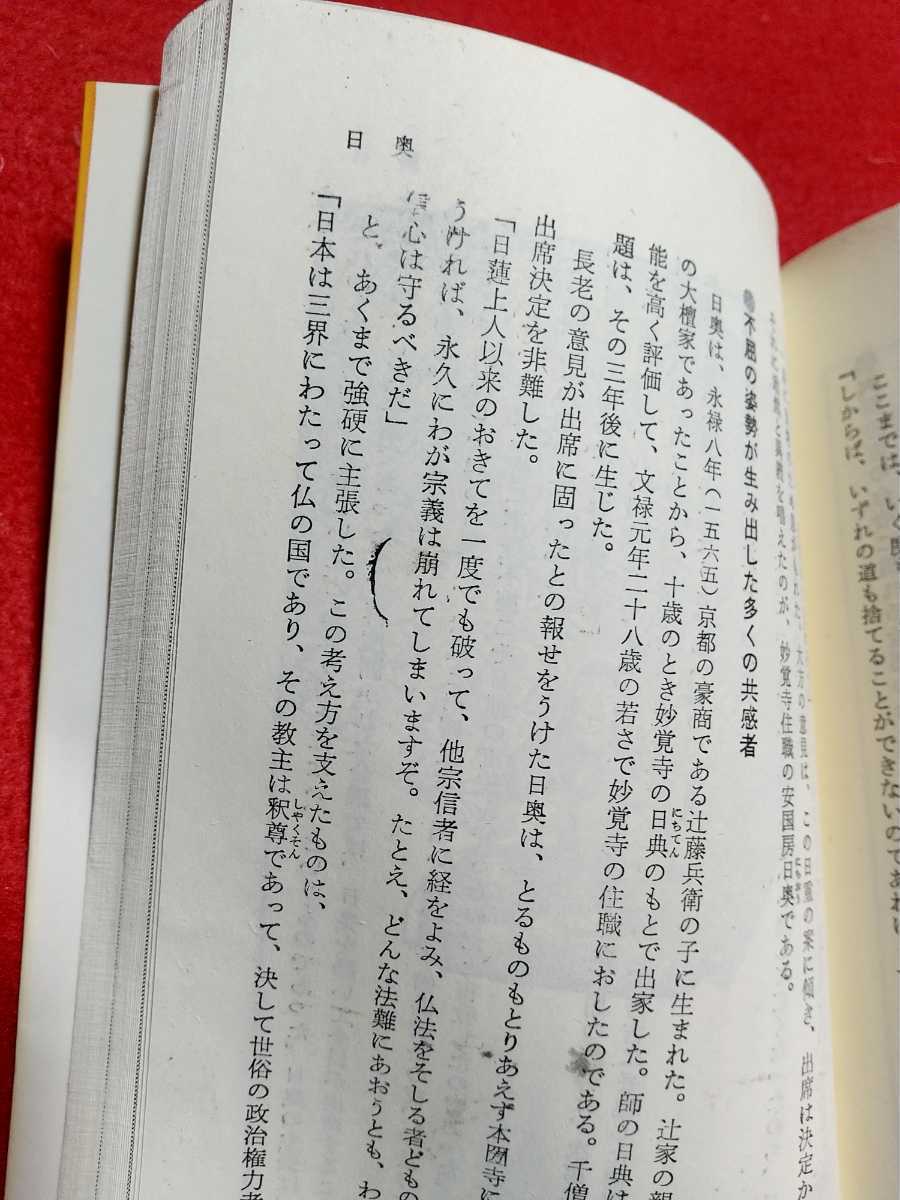 ここまでは、いく
「しからば、いずれの道も捨てることができないのであれば
方の意見は、この日重の案に傾き、出席は決定か
を唱えたのが、妙覚寺住職の安国房日奥である。
不屈の姿勢が生み出した多くの共感者
日奥は、永禄八年(一五六五)京都の豪商である辻藤兵衛の子に生まれた。辻家の親
の大檀家であったことから、十歳のとき妙覚寺の日典のもとで出家した。師の日典は
にちてん
能を高く評価して、文禄元年二十八歳の若さで妙覚寺の住職におしたのである。千僧
題は、その三年後に生じた。
長老の意見が出席に固ったとの報せをうけた日奥は、とるものもとりあえず本圀寺に
出席決定を非難した。
「日蓮上人以来のおきてを一度でも破って、他宗信者に経をよみ、仏法をそしる者どもの
うければ、永久にわが宗義は崩れてしまいますぞ。たとえ、どんな法難にあおうとも、わ
信心は守るべきだ」
と、あくまで強硬に主張した。この考え方を支えたものは、
「日本は三界にわたって仏の国であり、その教主は釈尊であって、決して世俗の政治権力者
しゃくそん
日奥